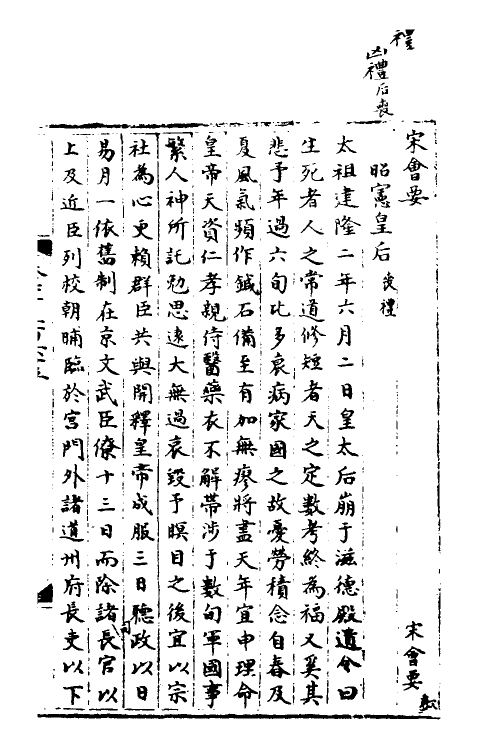 禮
凶禮后喪
宋會要
宋會要
昭憲皇后 喪禮
太祖建隆二年六月二日皇太后崩于滋德殿遺令曰
生死者人之常道修短者天之定數考終為福又奚其
悲予年過六旬比多衰病家國之故憂勞積念自春及
夏風氣頻作鍼石備至有加無瘳將盡天年宜申理命
皇帝天資仁孝親侍醫藥衣不解帶涉于數旬軍國事
繁人神所託勉思遠大無過哀毀予瞑目之後宜以宗
社為心更賴群臣共與開釋皇帝成服三日聽政以日
易月一依舊制在京文武臣僚十三日而除諸司長官以
上及近臣列校朝晡臨於宮門外諸道州府長吏以下